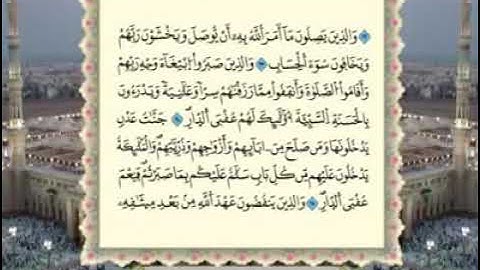 وَالَّذِينَ يَصِلُونَ مَا أَمَرَ اللَّهُ بِهِ أَنْ يُوصَلَ وَيَخْشَوْنَ رَبَّهُمْ
وَيَخَافُونَ سُوءَ الْحِسَابِ وَالَّذِينَ صَبَرُوا ابْتِغَاءَ وَجْهِ رَبِّهِمْ
وَأَقَامُوا الصَّلَوٰةَ وَأَنْفَقُوا مِمَّا رَزَقْنَاهُمْ سِرًّا وَعَلَانِيَةً وَيَدْرَءُونَ
بِالْحَسَنَةِ السَّيِّئَةَ أُولَٰئِكَ لَهُمْ عُقْبَى الدَّارِ جَنَّاتُ عَدْنٍ
يَدْخُلُونَهَا وَمَنْ صَلَحَ مِنْ ءَابَائِهِمْ وَأَزْوَاجِهِمْ وَذُرِّيَّاتِهِمْ وَالْمَلَائِكَةُ
يَدْخُلُونَ عَلَيْهِمْ مِنْ كُلِّ بَابٍ سَلَامٌ عَلَيْكُمْ بِمَا صَبَرْتُمْ فَنِعْمَ
عُقْبَى الدَّارِ وَالَّذِينَ يَنْقُضُونَ عَهْدَ اللَّهِ مِنْ بَعْدِ مِيثَاقِهِ